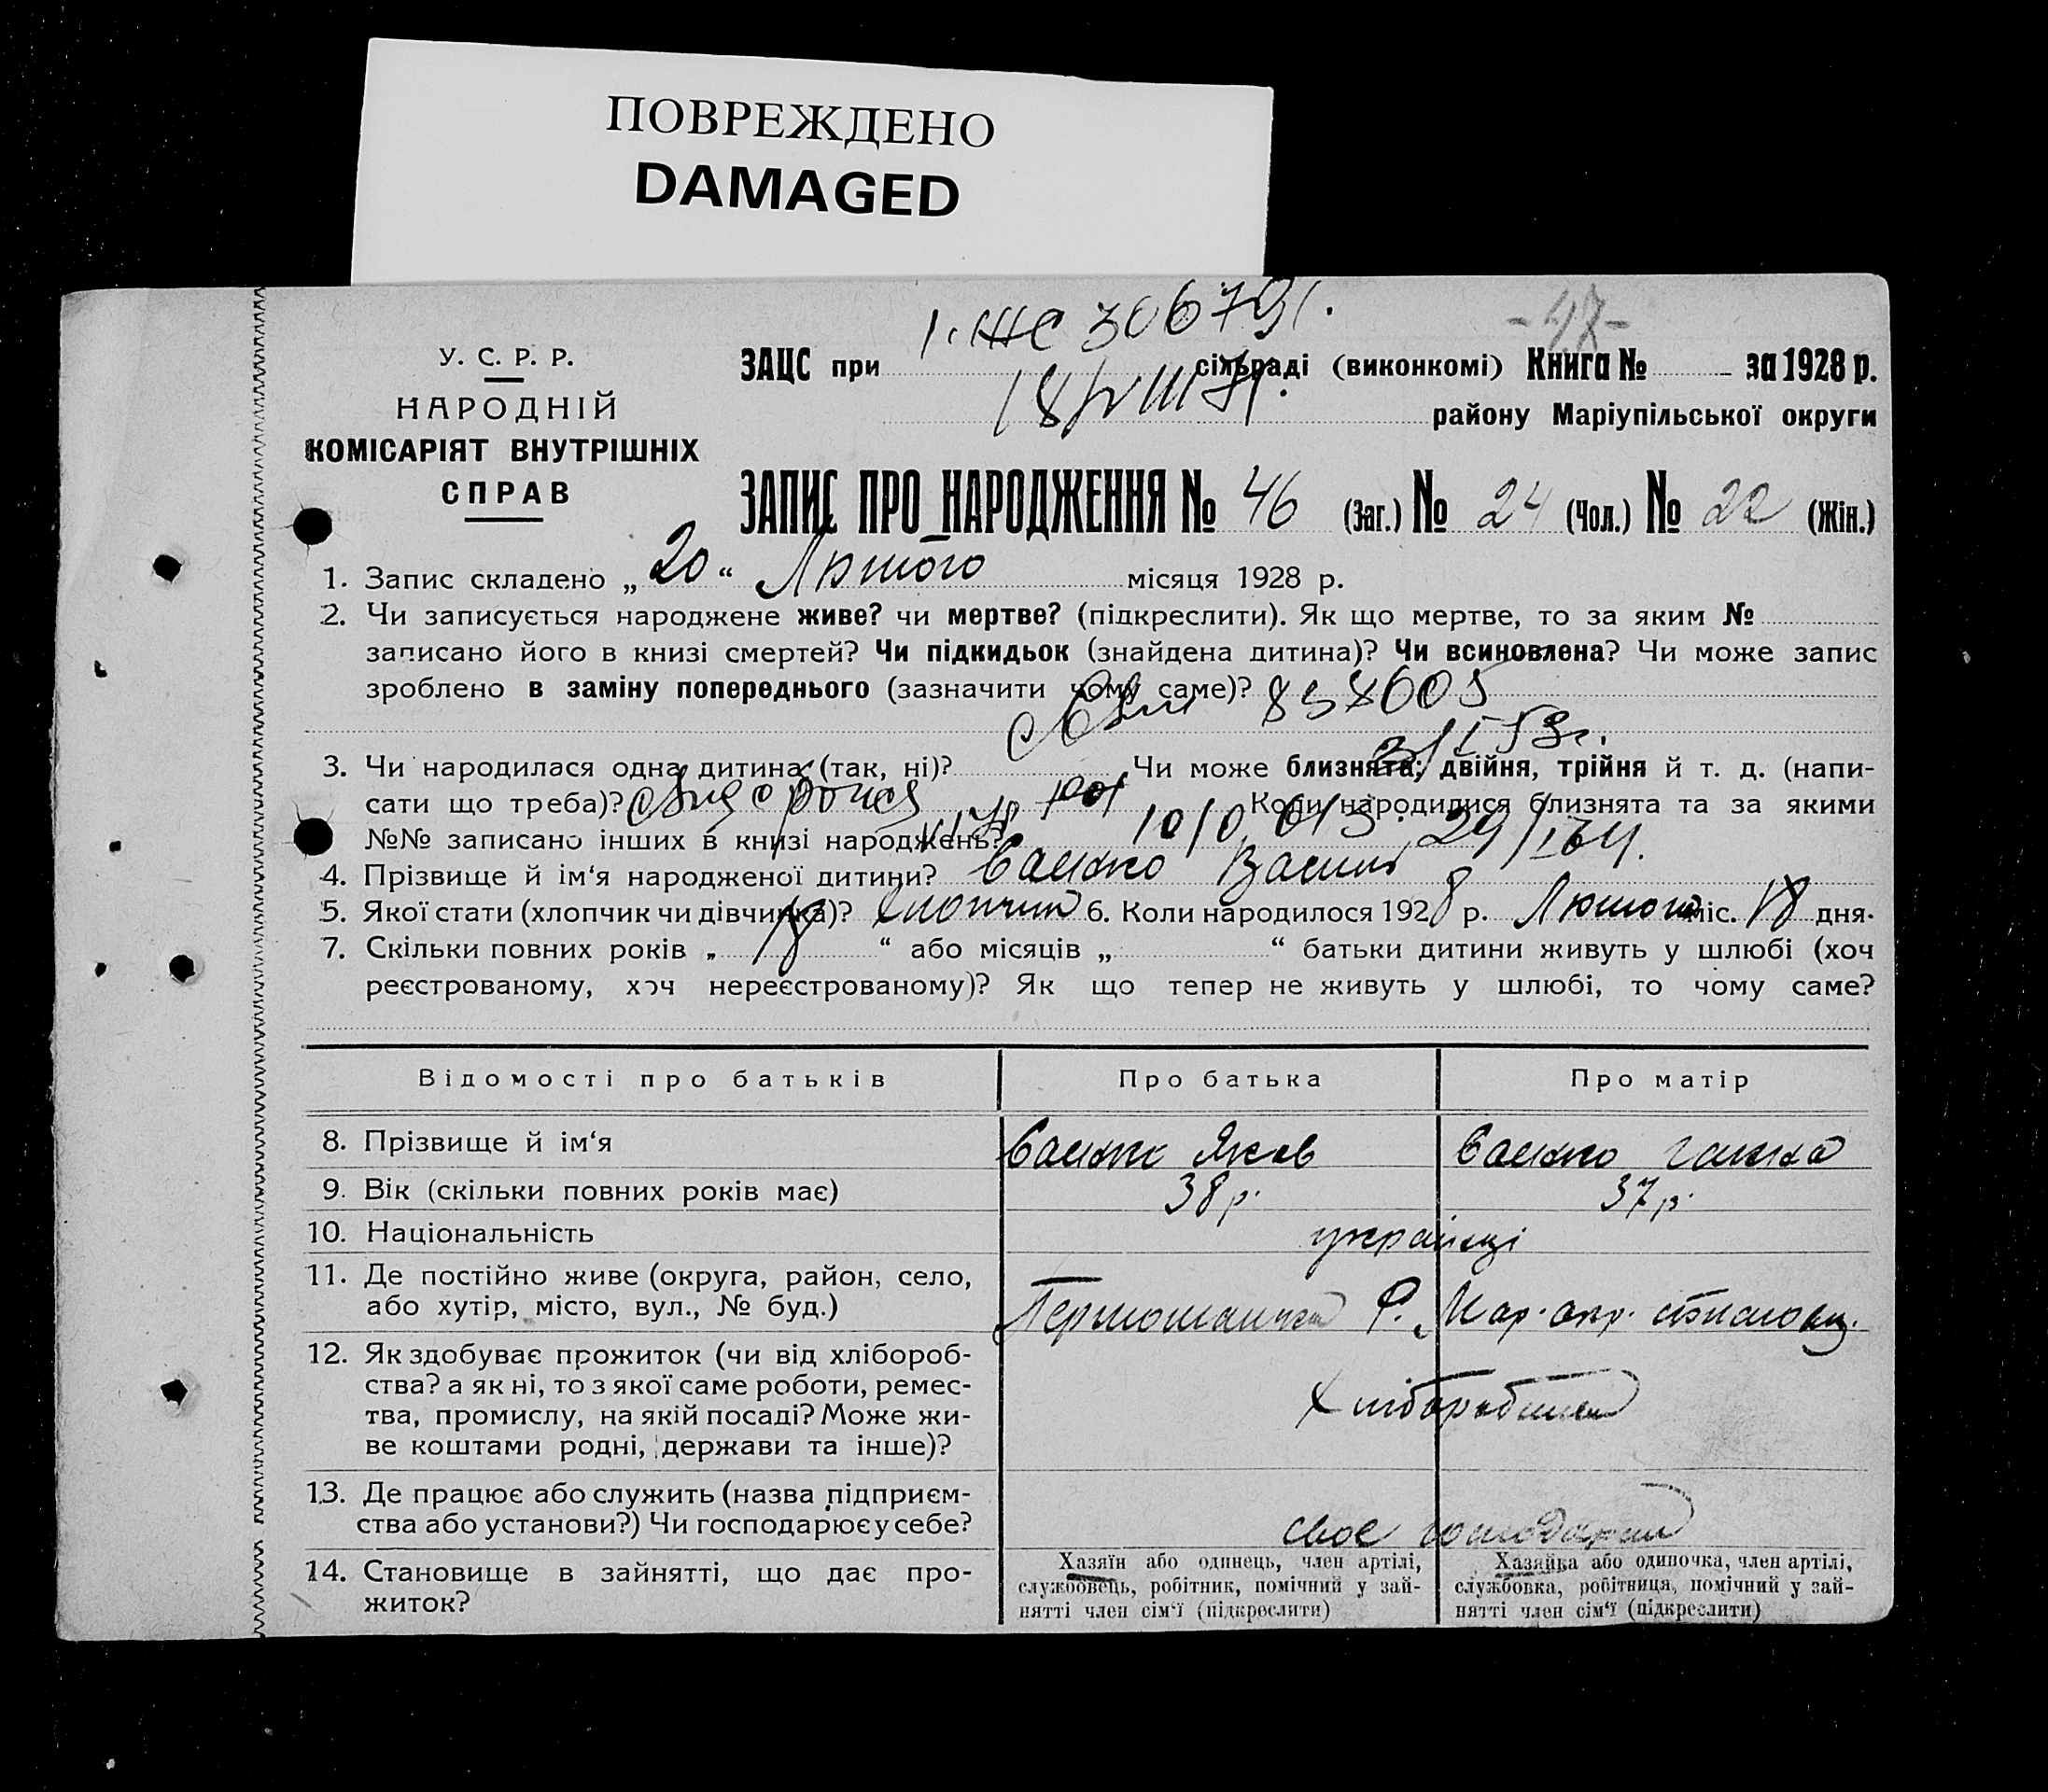 ПОВРЕЖДЕНО
DAMAGED
-47-
У. С. Р. Р.
НАРОДНІЙ
КОМІСАРІЯТ ВНУТРІШНІХ
СПРАВ
ЗАЦС при сільраді (виконкомі) Книга № за 1928 р.
району Маріупільської округи
ЗАПИС ПРО НАРОДЖЕННЯ № 46 (Заг.) № 24 (Чол.) № 22 (Жін.)
1. Запис складено „20“ Лютого місяця 1928 р.
2. Чи записується народжене живе? чи мертве? (підкреслити). Як що мертве, то за яким №
записано його в книзі смертей? Чи підкидьок (знайдена дитина)? Чи всиновлена? Чи може запис
зроблено в заміну попереднього (зазначити чому саме)?
3. Чи народилася одна дитина (так, ні)? Чи може близнята; двійня, трійня й т. д. (напи-
сати що треба)? Коли народилися близнята та за якими
№№ записано інших в книзі народжень?
4. Прізвище й ім‘я народженої дитини? Василь
5. Якої стати (хлопчик чи дівчинка)? Хлопчик 6. Коли народилося 1928 р. Лютого міс. 18 дня.
7. Скільки повних років „18“ або місяців „ “ батьки дитини живуть у шлюбі (хоч
реєстрованому, хоч нереєстрованому)? Як що тепер не живуть у шлюбі, то чому саме?
Відомості про батьків Про батька Про матір
8. Прізвище й ім‘я Яків Ганна
9. Вік (скільки повних років має) 38 р. 37 р.
10. Національність українці
11. Де постійно живе (округа, район, село,
або хутір, місто, вул., № буд.) Мар. окр.
12. Як здобуває прожиток (чи від хлібороб-
ства? а як ні, то з якої саме роботи, ремес-
тва, промислу, на якій посаді? Може жи-
ве коштами родні, держави та інше)?
13. Де працює або служить (назва підприєм-
ства або установи?) Чи господарює у себе? своє
14. Становище в зайнятті, що дає про-
житок?
Хазяїн або одинець, член артілі,
службовець, робітник, помічний у зай-
нятті член сім‘ї (підкреслити)
Хазяйка або одиночка, член артілі,
службовка, робітниця, помічний у зай-
нятті член сім‘ї (підкреслити)